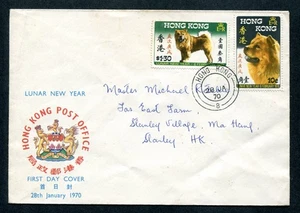 HONG KONG
香港
$1.30
HONG KONG
香港
10¢
LUNAR NEW YEAR
HONG KONG
28 JA
70
8
HONG KONG POST OFFICE
香港郵政局
Master Michael
Far East Farm,
Stanley Village, Ma Hang,
Stanley, HK.
FIRST DAY COVER
首日封
28th January 1970